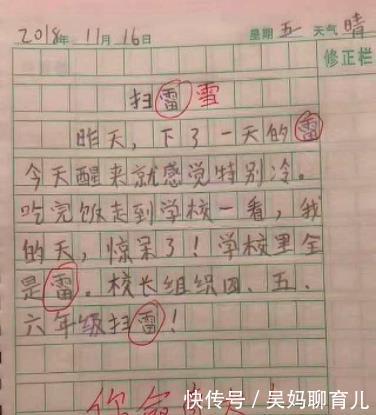 2018年 11月 16日 星期五 天气晴
修正栏
扫雷雪
昨天，下了一天的雷
今天醒来就感觉特别冷。
吃完饭走到学校一看，我
的天，惊呆了！学校里全
是雷。校长组织四、五、
六年级扫雷！
快传号/吴妈聊育儿